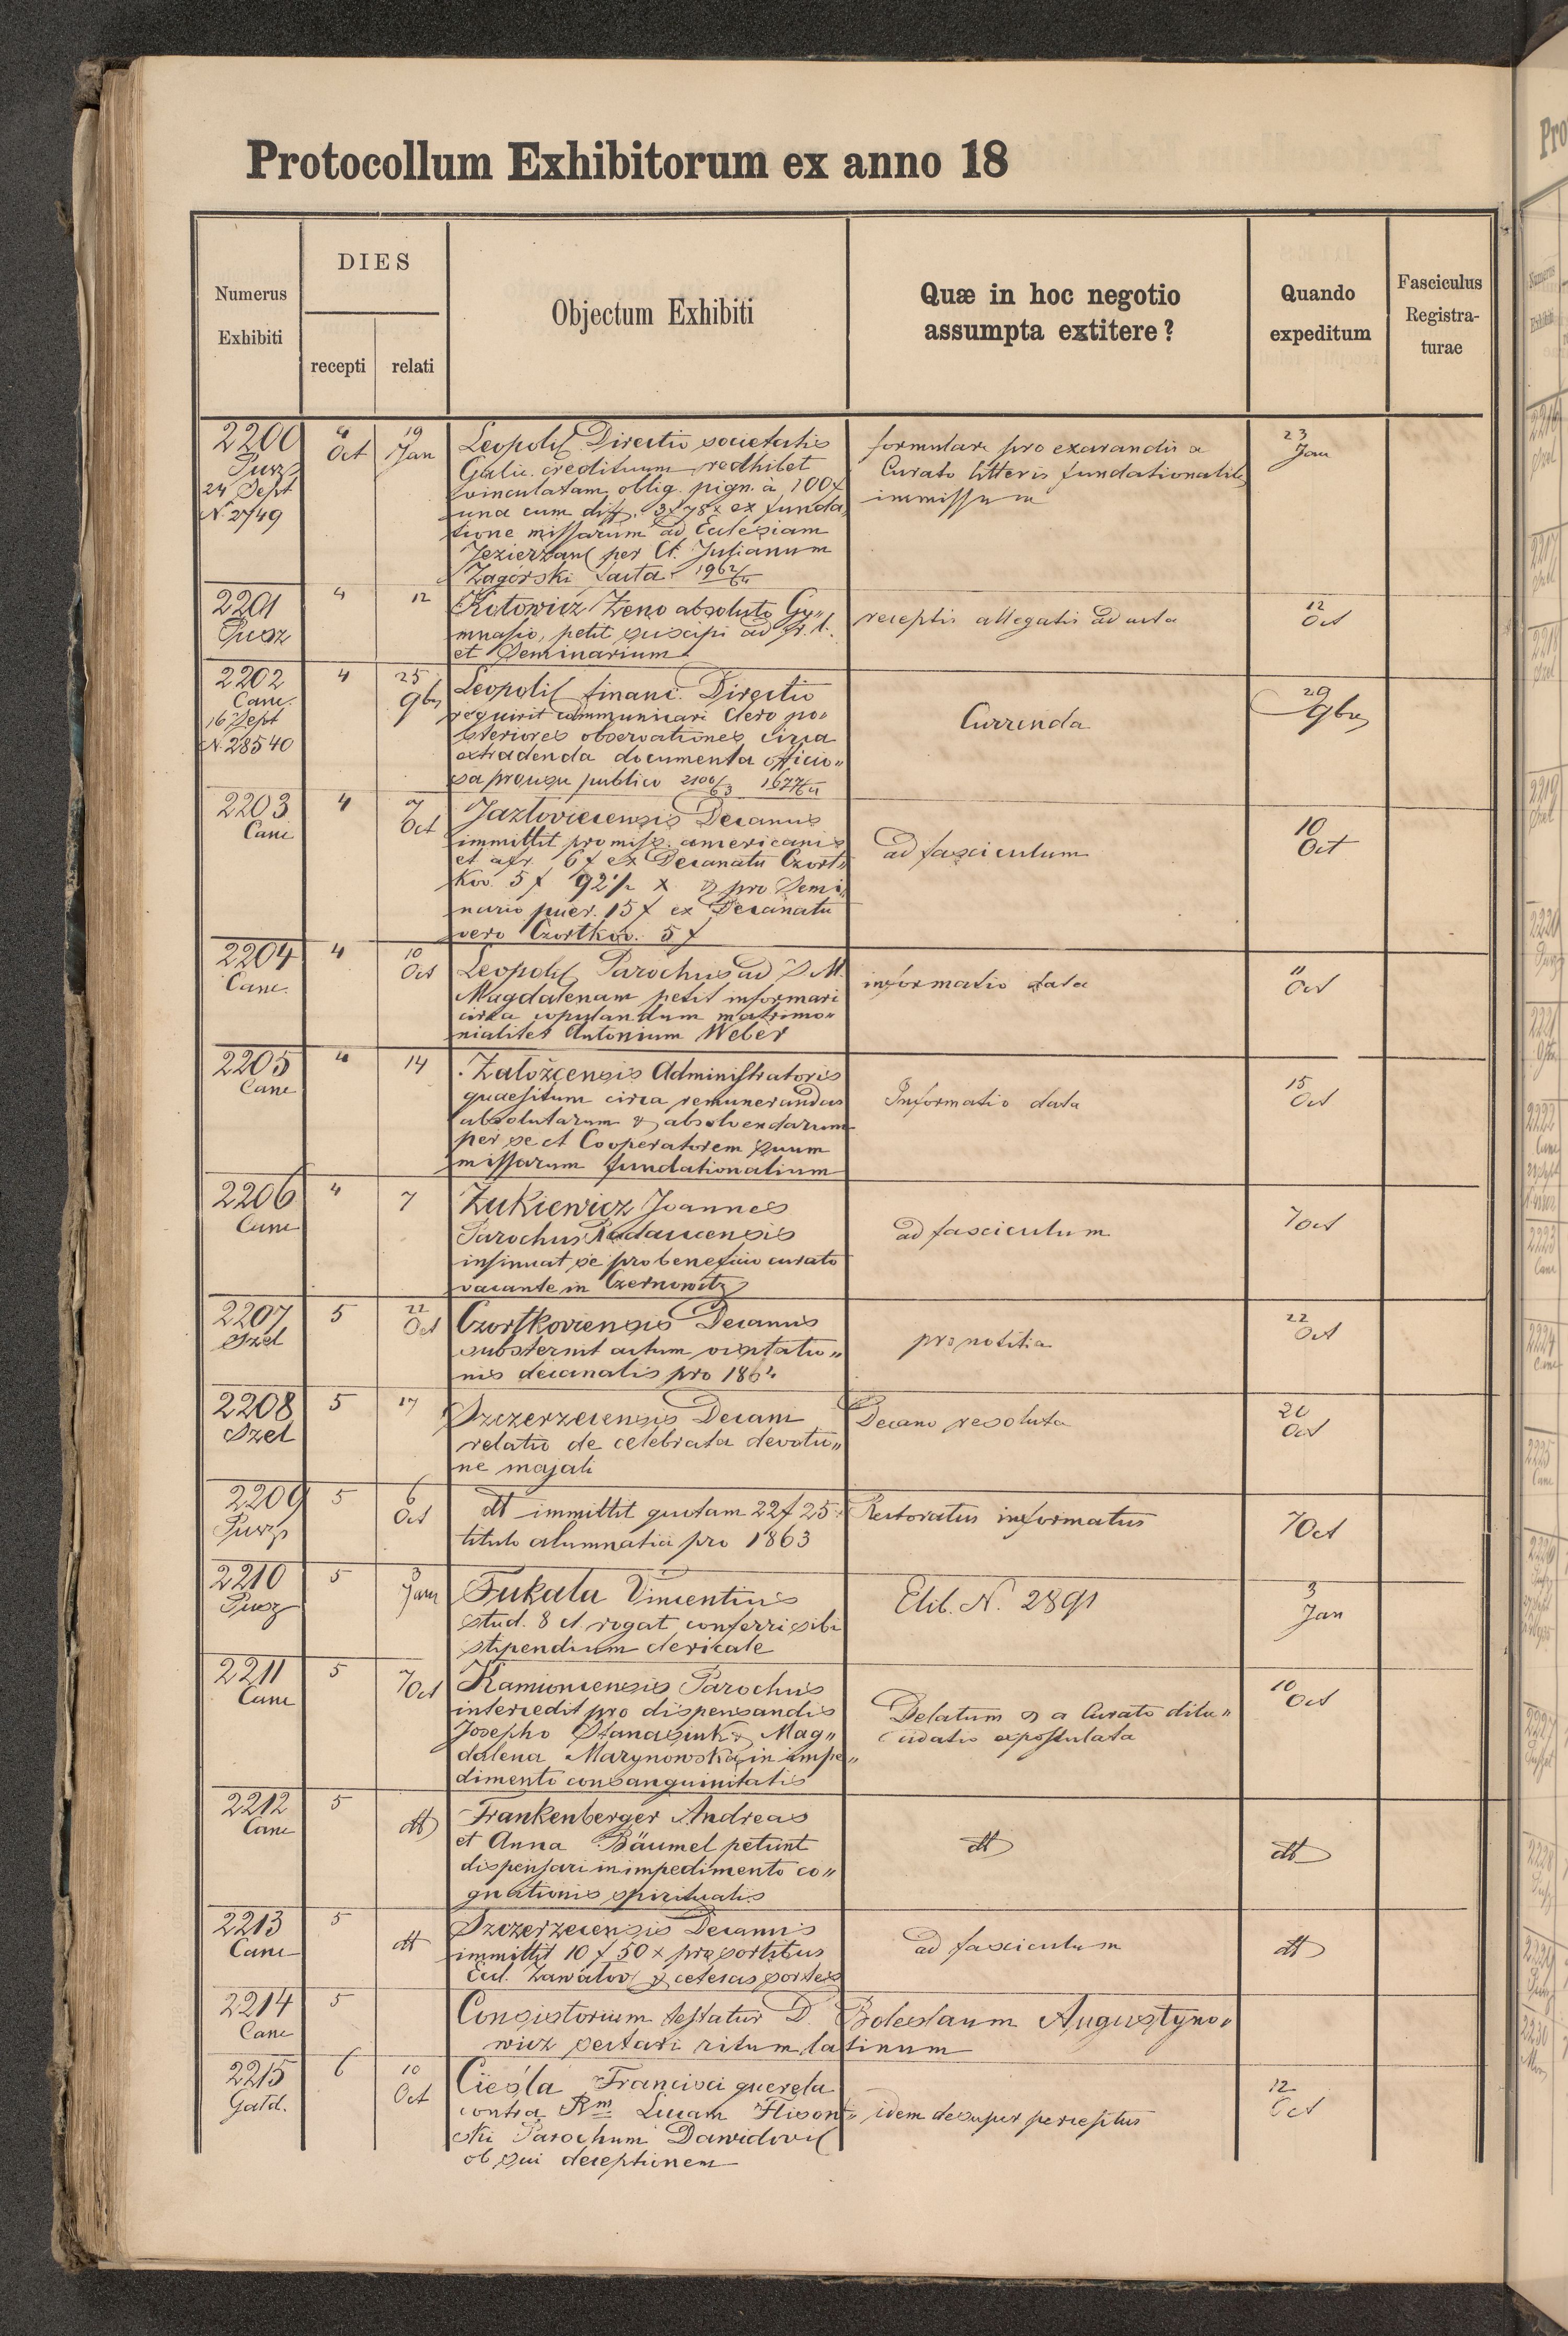 Protocollum Exhibitorum ex anno 18
Numerus
Exhibiti
DIES
recepti
relati
Objectum Exhibiti
Quæ in hoc negotio
assumpta extitere?
Quando
expeditum
Fasciculus
Registra-
turae
2200
24 Sept
N 2749
4
Oct
19
Jan
Leopol Directio societatis
Galic. credituum redhibet
vinculatam oblig. pign. à 100 f
una cum diff. 3 f 78 x ex funda
tione missarum ad Ecclesiam
Jezierzan per Cl. Julianum
Zagórski facta 1962/64
formulare pro exarandis a
Curato litteris fundationalib
immissum
23
Jan
2201
4
12
Kotowicz Zeno absoluto Gy„
mnasio, petit suscipi ad st. t.
et Seminarium
receptis allegatis ad acta
12
Oct
2202
Canc.
16 Sept
N. 28540
4
25
9br
Leopol financ. Directio
requirit communicari Clero po„
steriores observationes circa
extradenda documenta officio„
sa pro usu publico 2100/63 1677/64
Currenda
29
9br
2203
Canc
4
7
Oct
Jazlovicensis Decanus
immittit pro miss. americanis
et afr. 6 f ex Decanatu Czort„
kov. 5 f 92 1/2 x & pro Semi„
nario puer. 15 f ex Decanatu
vero Czortkov. 5 f
ad fasciculum
10
Oct
2204
Canc.
4
10
Oct
Leopol Parochus ad S M.
Magdalenam petit informari
circa copulandum matrimo„
nialiter Antonium Weber
informatio data
11
Oct
2205
Canc
4
14
Założcensis Administratoris
quaesitum circa remunerandas
absolutarum & absolvendarum
per se et Cooperatorem suum
missarum fundationalium
Informatio data
15
Oct
2206
Canc
4
7
Zukiewicz Joannes
Parochus Radaucensis
insinuat se pro beneficio curato
vacante in Czernowitz
ad fasciculum
7 Oct
2207
Szel
5
22
Oct
Czortkoviensis Decanus
substernit actum visitatio„
nis decanalis pro 1864
pro notitia
22
Oct
2208
Szel
5
17
Szczerzecensis Decani
relatio de celebrata devotio„
ne majali
Decano resoluta
20
Oct
2209
5
6
Oct
dt immittit quotam 22 f 25
titulo alumnatici pro 1863
Rectoratus informatus
7 Oct
2210
5
3
Jan
Fukala Vincentius
stud. 8 cl. rogat conferri sibi
stipendium clericale
Elib. N. 2891
3
Jan
2211
Canc
5
7 Oct
Kamioncensis Parochus
intercedit pro dispensandis
Josepho Stanasiuk & Mag„
dalena Marynowska in impe„
dimento consanguinitatis
Delatum & a Curato dilu„
cidatio expostulata
10
Oct
2212
Canc
5
dt
Frankenberger Andreas
et Anna Bäumel petunt
dispensari in impedimento co„
gnationis spiritualis
dt
dt
2213
Canc
5
dt
Szczerzecensis Decanus
immittit 10 f 50 x pro sortibus
Eccl. Zawałov & ceteras sortes
ad fasciculum
dt
2214
Canc
5
Consistorium testatur D. Boleslaum Augustyno„
wicz sectari ritum latinum
2215
Gatd.
6
10
Oct
Cieśla Francisci querela
contra Rm Lucam Flison„
ski Parochum Dawidov
ob sui deceptionem
idem desuper perceptus
12
Oct